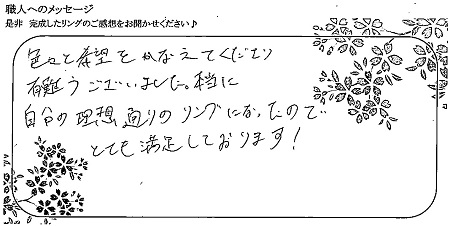 職人へのメッセージ
是非 完成したリングのご感想をお聞かせください♪
色々と希望をかなえてくださり
有難うございました。本当に
自分の理想通りのリングになったので
とても満足しております!